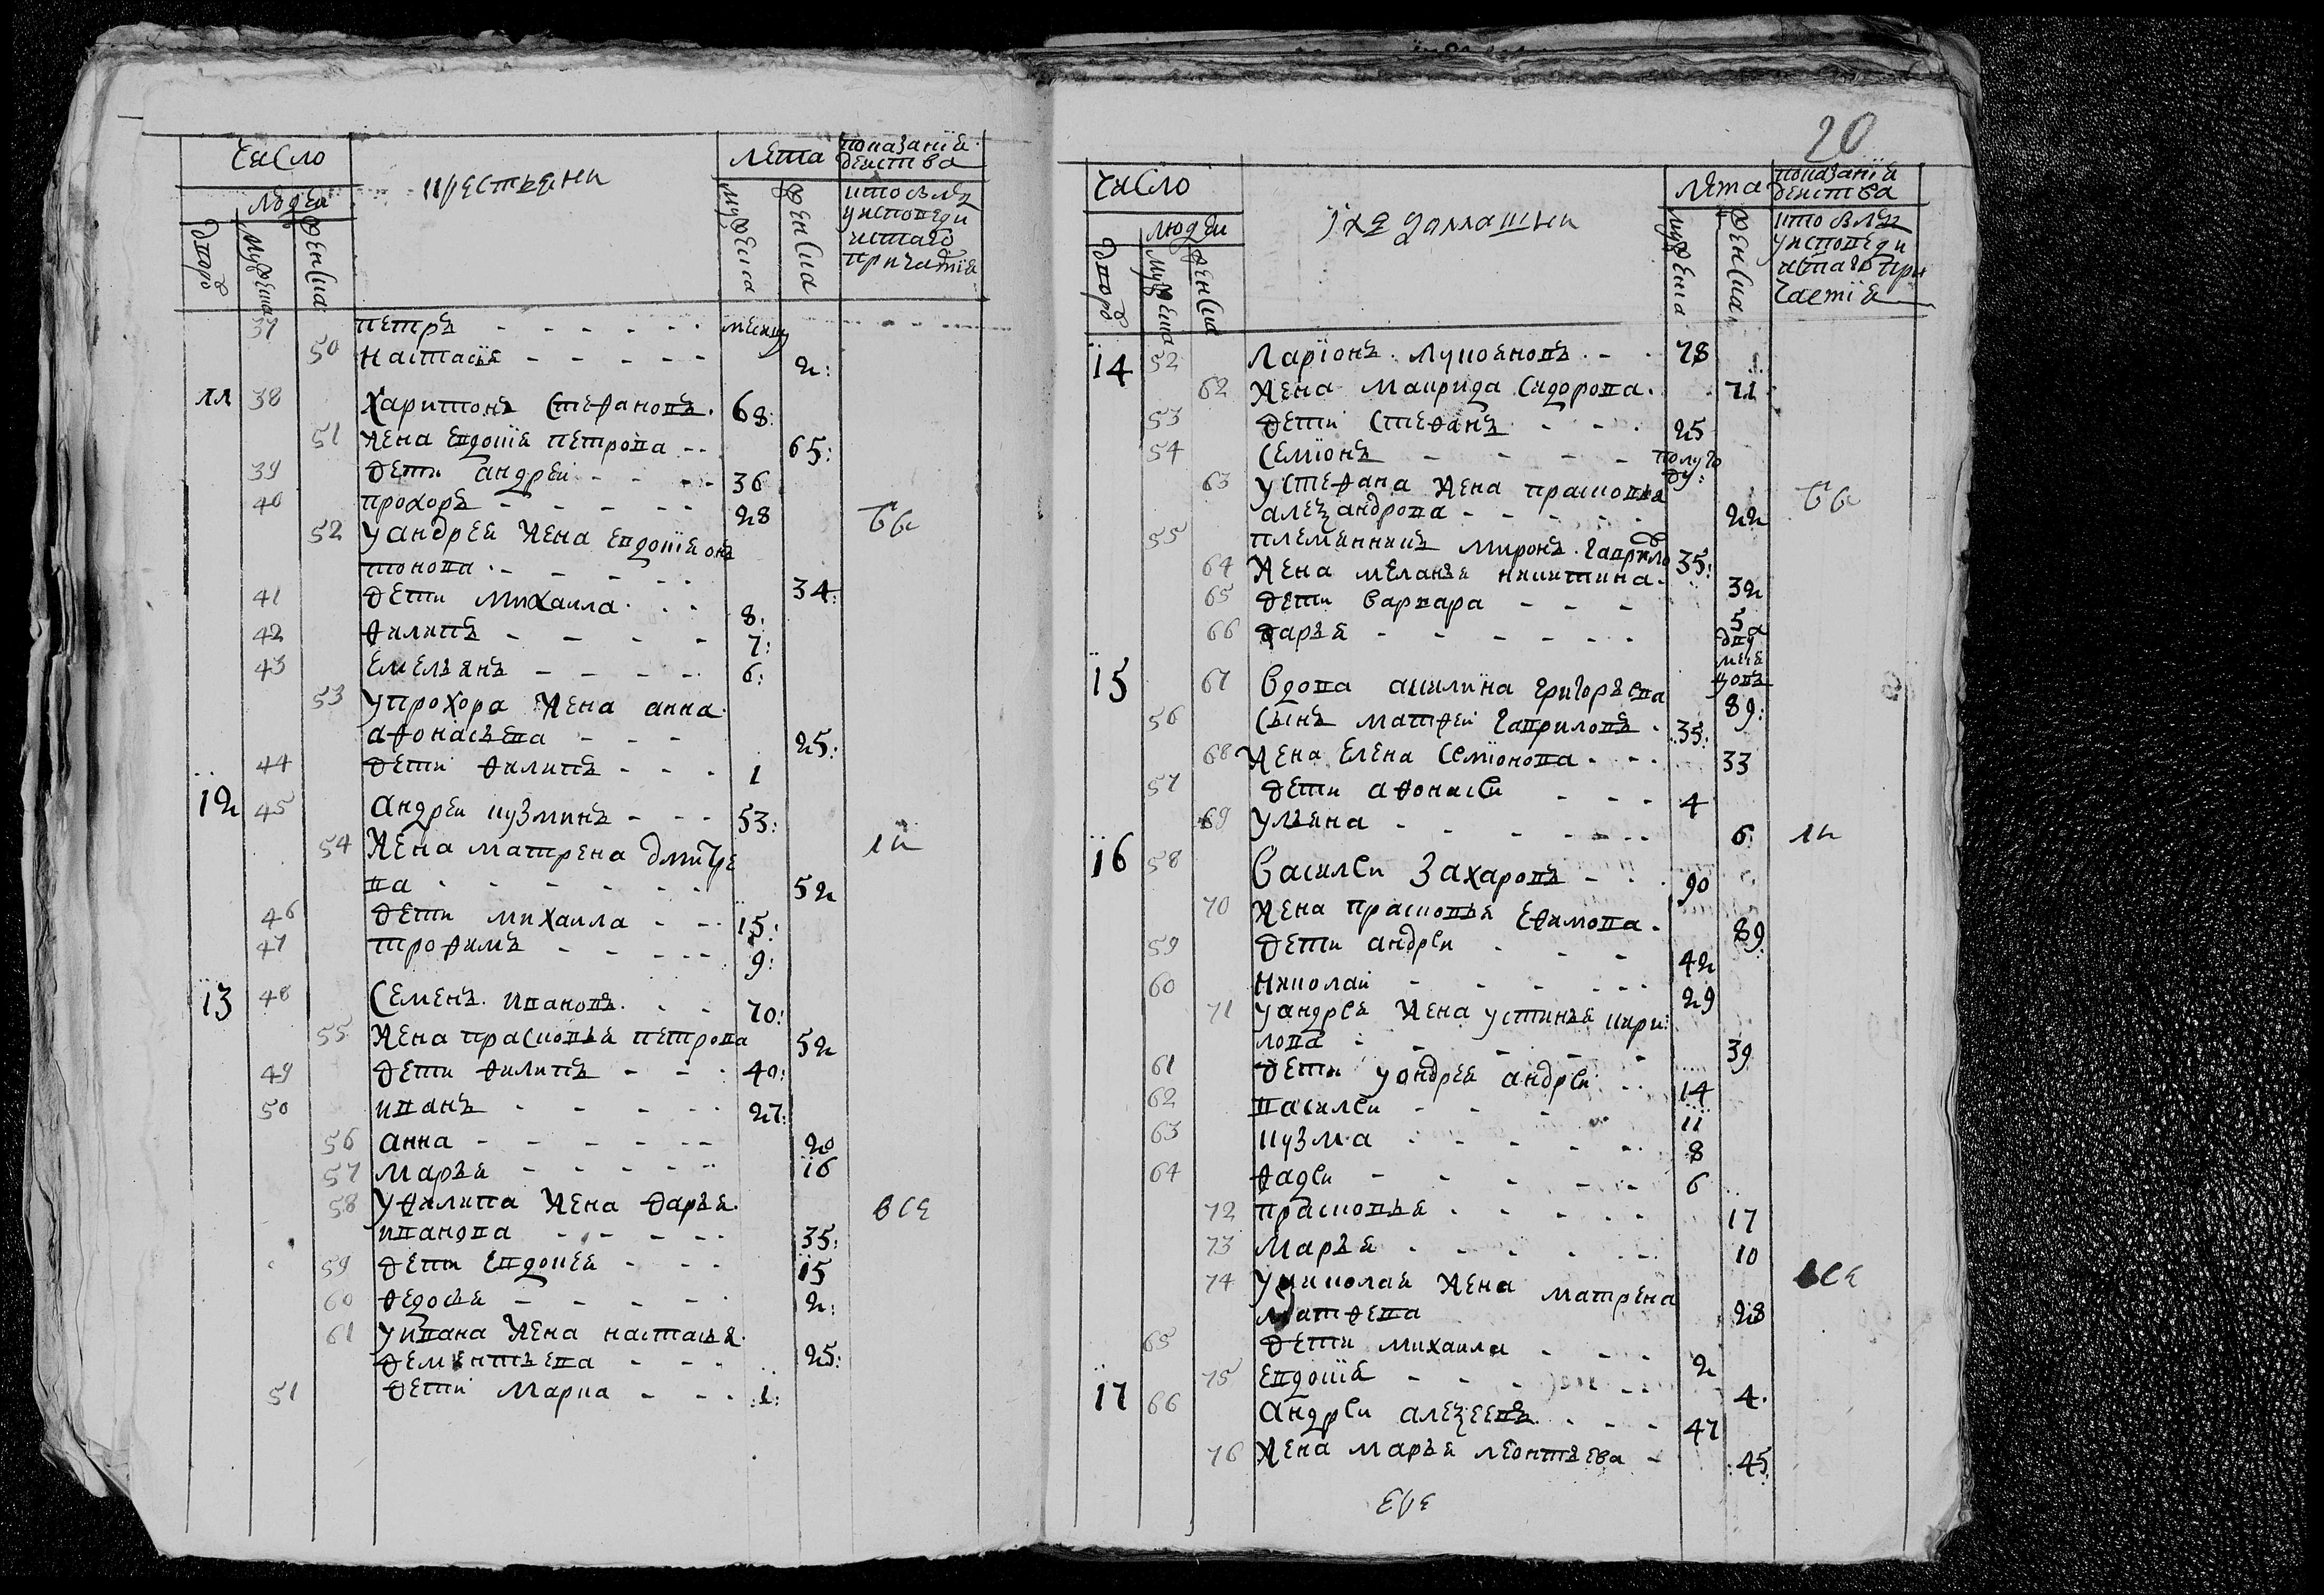 число
крестьяне
лета
показание
действа
людей
дворо
мужеска
женска
мужеска
женска
кто былъ
у исповеди
и стаго
причастия
37 петръ месяцъ
50 настасия 2:
11 38 харитонъ степановъ. 68:
51 жена евдокия петрова 65:
39 дети андреи 36
40 прохоръ 28
52 у андрея жена евдокия
тонова 34:
41 дети михаила 8:
42 филипъ 7:
43 емельянъ 6:
53 у прохора жена анна
афонасьева 25:
44 дети филипъ 1
12 45 андреи кузминъ 53:
54 жена матрена дмитре
ва 52
46 дети михаила 15:
47 трофимъ 9:
13 48 семенъ ивановъ 70:
55 жена прасковья петрова 52
49 дети филипъ 40:
50 иванъ 27:
56 анна 20
57 марья 16
58 у филипа жена дарья все
иванова 35:
59 дети евдокея 15
60 федосья 2:
61 у ивана жена настасья
дементьева 25:
51 дети марка 1:
20
число
ихъ домашни
лета
показание
действа
людеи
дворо
мужеска
женска
мужеска
женска
кто былъ
у исповеди
и стаго при
частия
14 52 ларионъ лукояновъ 78
62 жена маврида сидорова 71
53 дети степанъ 25
54 семионъ полуго
ду:
63 у степана жена прасковья
алезандрова 22
55 племянникъ миронъ гаврило 35:
64 жена меланья никитина 32
65 дети варвара 5
66 дарья два
меся
цовъ
15 67 вдова акилина григорьевна 89:
56 сынъ матфеи гавриловъ 35:
68 жена елена семионова 33
57 дети афонасеи 4
69 ульяна 6:
16 58 василеи захаровъ 90
70 жена прасковья ефимова 89:
59 дети андреи 42
60 николаи 29
71 у андрея жена устинья кири
лова 39
61 дети у андрея андреи 14
62 василеи 11
63 кузма 8
64 фадеи 6
72 прасковья 17
73 марья 10
74 у николая жена матрена все
матфева 28
65 дети михаила 2
75 евдокия 4
17 66 андреи алезеевъ 47
76 жена марья леонтьева 45: